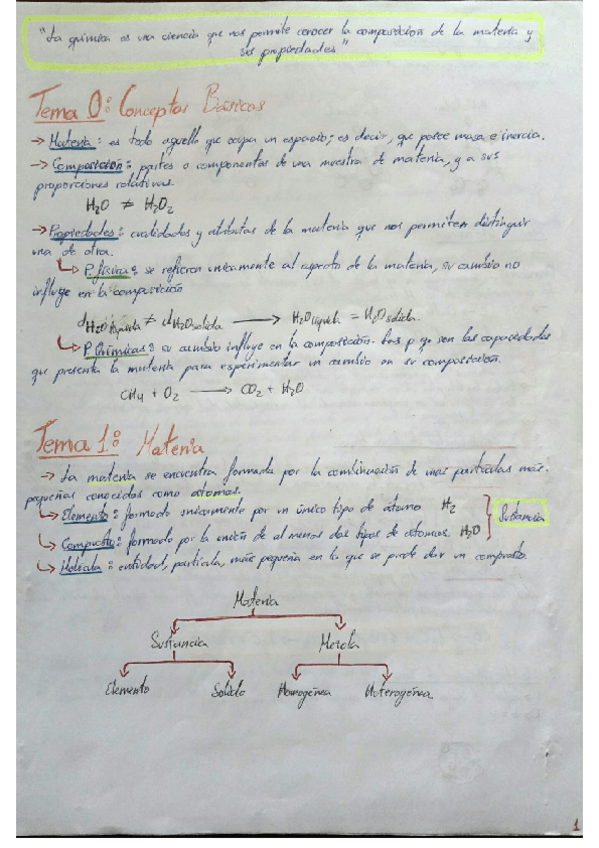 "La química es una ciencia que nos permite conocer la composición de la materia y
sus propiedades"
Tema 0: Conceptos Básicos
→ Materia: es todo aquello que ocupa un espacio; es decir, que posee masa e inercia.
→ Composición: partes o componentes de una muestra de materia, y a sus
proporciones relativas.
H₂O ≠ H₂O₂
→ Propiedades: cualidades y atributos de la materia que nos permiten distinguir
una de otra.
↳ P. física: se refieren únicamente al aspecto de la materia, su cambio no
influye en la composición
d H₂O líquida ≠ d H₂O solida → H₂O líquida = H₂O solida.
↳ P. Químicas: su cambio influye en la composición. Las p.q. son las capacidades
que presenta la materia para experimentar un cambio en su composición.
CH₄ + O₂ → CO₂ + H₂O
Tema 1: Materia
→ La materia se encuentra formada por la combinación de unas partículas más
pequeñas conocidas como átomos.
↳ Elemento: formado únicamente por un único tipo de átomo H₂
Sustancia
↳ Compuesto: formado por la unión de al menos dos tipos de átomos. H₂O
↳ Molécula: entidad, partícula, más pequeña en la que se puede dar un compuesto.
Materia
Sustancia Mezcla
Elemento Solido Homogénea Heterogénea
1